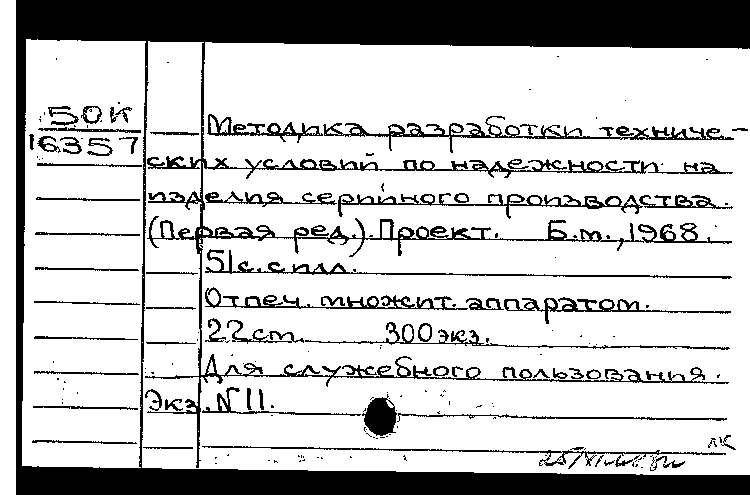 50К
16357
Методика разработки техниче-
ских условий по надежности на
изделия серийного производства.
(Первая ред.). Проект. Б.м., 1968.
51с. с илл.
Отпеч. множит. аппаратом.
22 см. 300 экз.
Для служебного пользования.
Экз. N 11.
лк